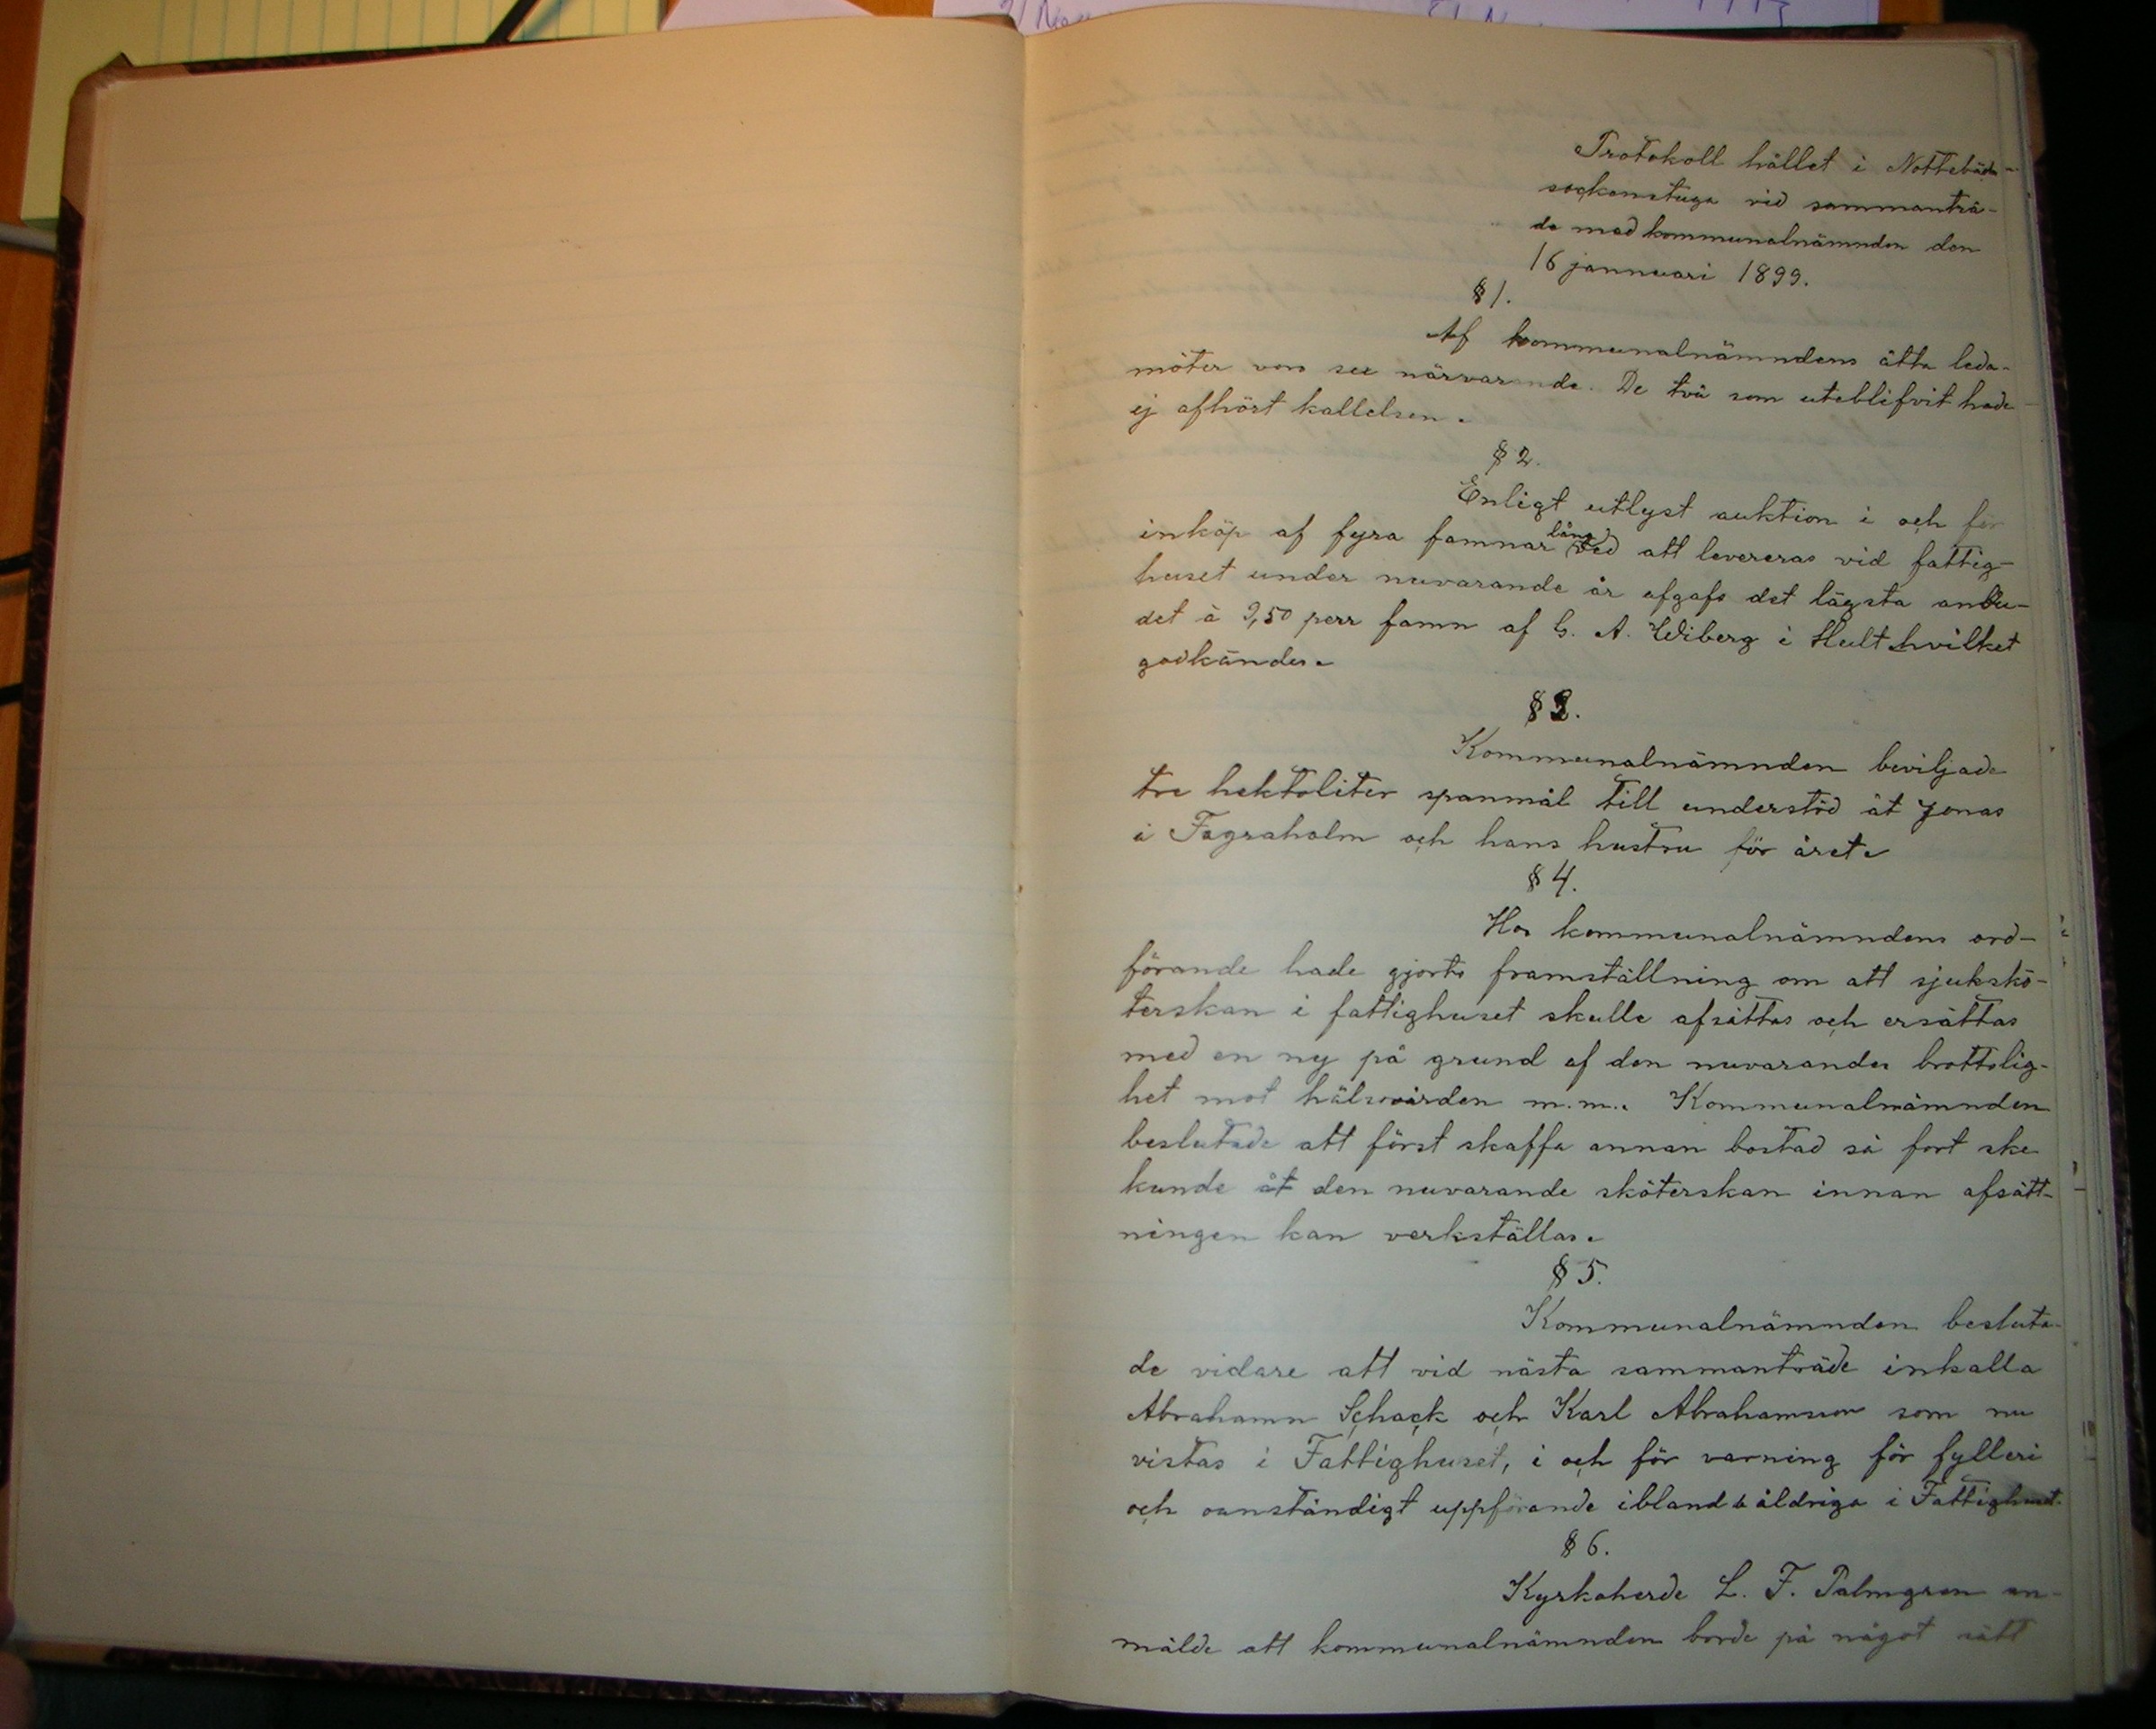 Protokoll hållet i Nottebäcks
sockenstuga vid sammanträ-
de med kommunalnämnden den
16 jannuari 1899.
§ 1.
Af kommunalnämndens åtta leda-
möter voro sex närvarande. De två som uteblifvit hade
ej afhört kallelsen.
§ 2.
Enligt utlyst auktion i och för
inköp af fyra famnar lång ved att levereras vid fattig-
huset under nuvarande år afgafs det lägsta anbu-
det à 9,50 perr famn af G. A. Wiberg i Hult hvilket
godkändes.
§ 3.
Kommunalnämnden beviljade
tre hektoliter spanmål till understöd åt Jonas
i Fagraholm och hans hustru för året.
§ 4.
Hos kommunalnämndens ord-
förande hade gjorts framställning om att sjukskö-
terskan i fattighuset skulle afsättas och ersättas
med en ny på grund af den nuvarandes brottslig-
het mot hälsovården m.m. Kommunalnämnden
beslutade att först skaffa annan bostad så fort ske
kunde åt den nuvarande sköterskan innan afsätt-
ningen kan verkställas.
§ 5.
Kommunalnämnden besluta-
de vidare att vid nästa sammanträde inkalla
Abrahamn Schack och Karl Abrahamson som nu
vistas i Fattighuset, i och för varning för fylleri
och oanständigt uppförande ibland åldriga i Fattighuset.
§ 6.
Kyrkoherde L. F. Palmgren an-
mälde att kommunalnämnden borde på något sätt